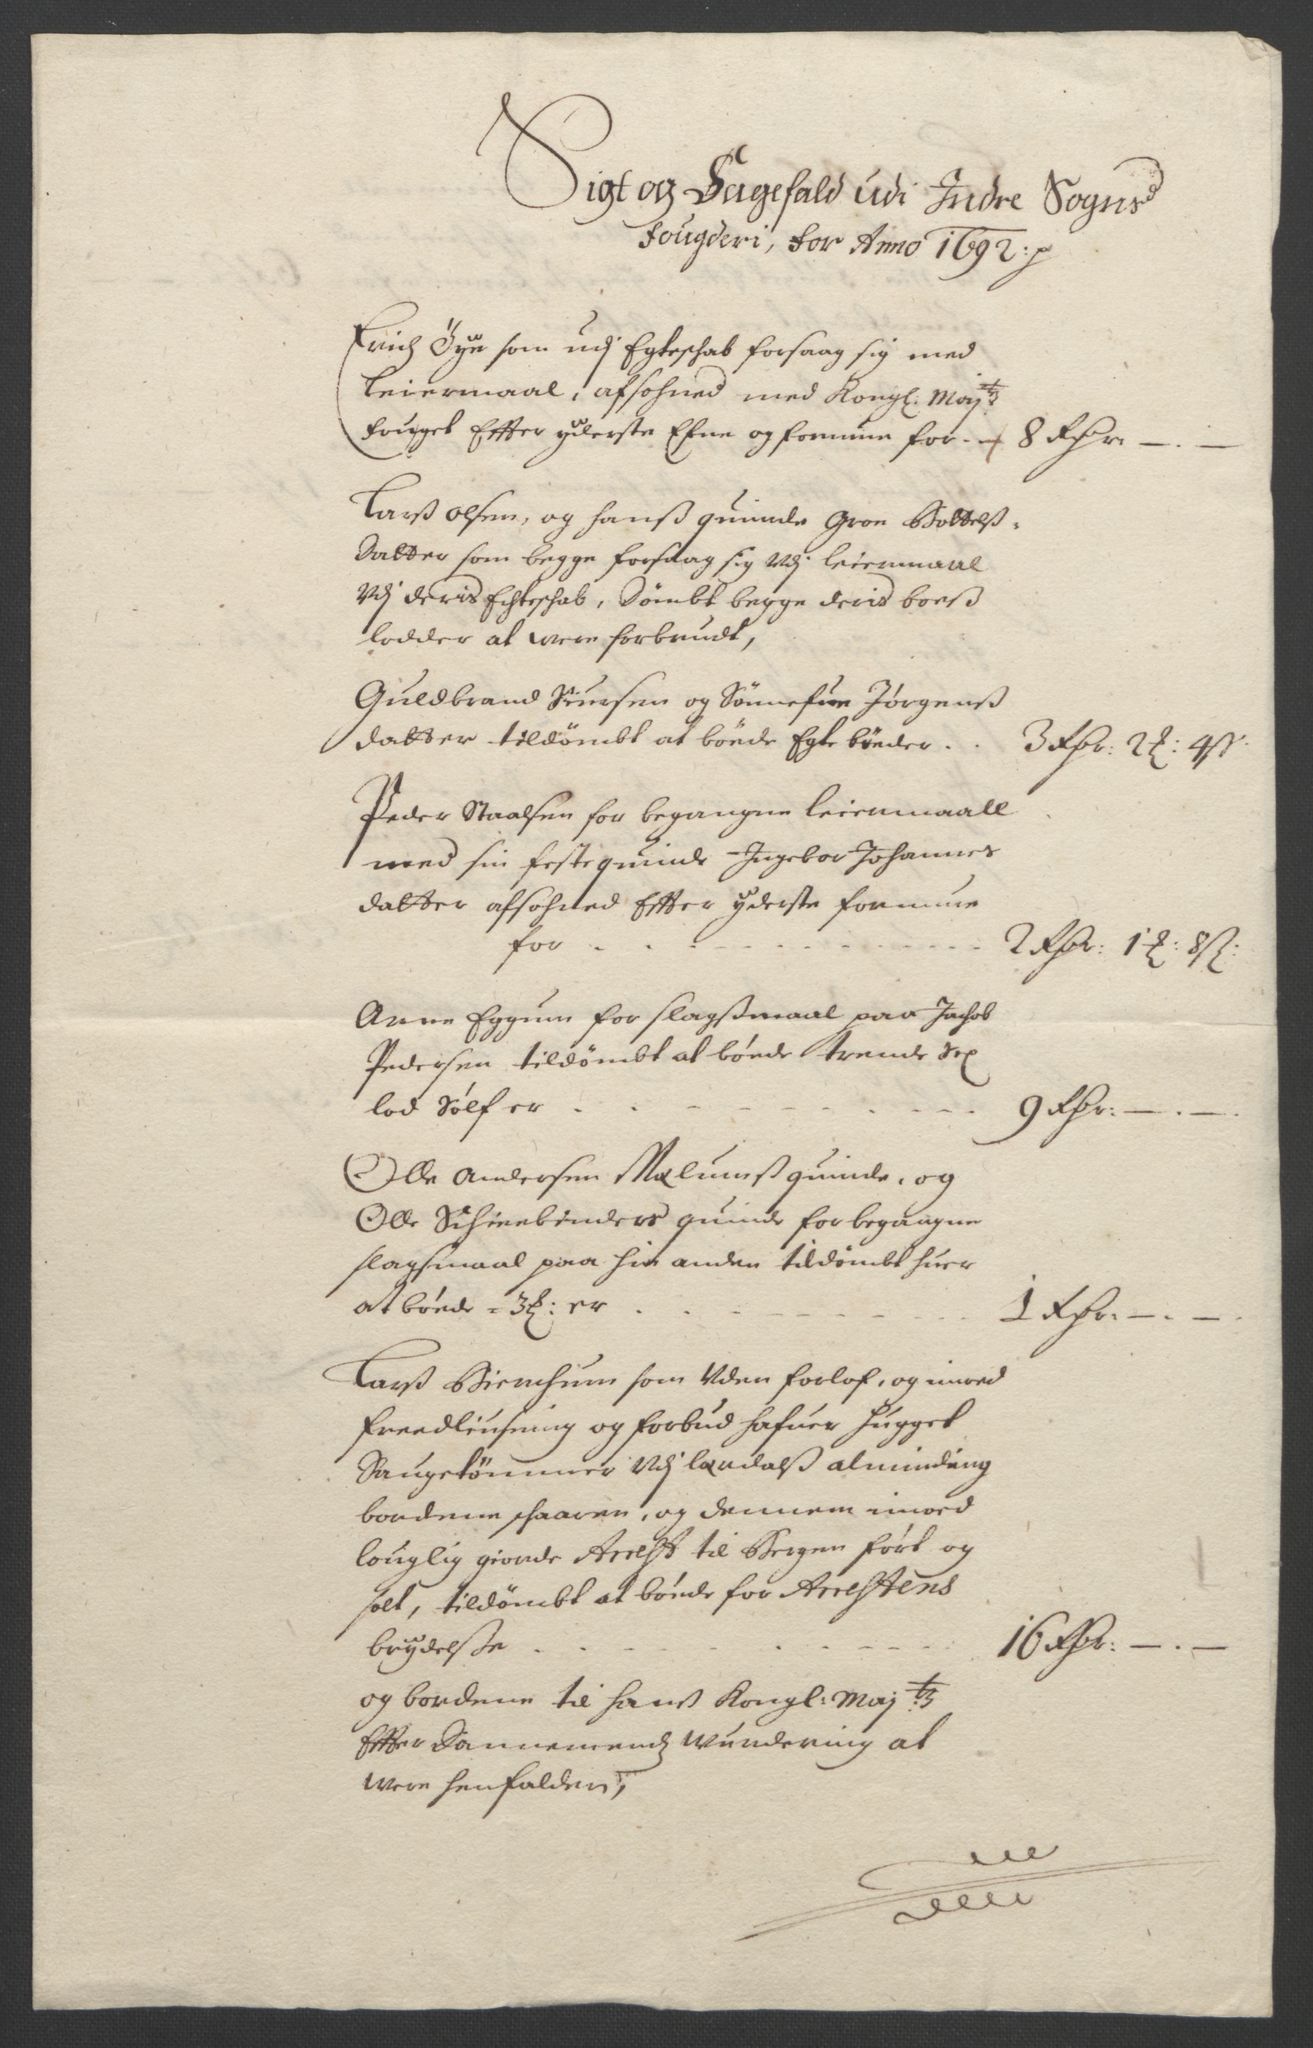 Sigt og Sagefald udi Indre Sogns
fougderi, for Anno 1692:p
Erich Öye som udj Egteschab forsaag sig med
Leiermaal, afsohned med Kongl: May:ts
fouget Effter yderste Efne og formue for - 8 Rdr: - . -
Larß Olsen, og hanß quinde Groe Bottelß-
datter som begge forsaag sig Vdj leiermaal
Vdj deris Echteschab, dömbt begge deris boeß
lodder at were forbrudt,
Guldbrand Siursen og Sönnefue Jörgenß
datter tildömbt at böede Egte böeder . . 3 Rdr: 2 ℔: 4 ß
Peder Staalsen for begangne leiermaall
med sin feste quinde Ingebor Johannes
datter afsohned Effter yderste formue
for . . . 2 Rdr: 1 ℔: 8 ß:
Arne Eggum for slagßmaal paa Jachob
Pedersen tildömbt at böede trende Sex
lod Sölf er . . . 9 Rdr: - . -
Olle Andersen Mælumß quinde, og
Olle Schinbinders quinde for begaagne
slagsmaal paa hin anden tildömbt huer
at böede - 3 ℔: er . . . 1 Rdr: - . -
Larß Bierchum som Vden forlof, og imod
freedliusning og forbud hafuer hugget
Saugetömmer Vdj lærdalß alminding
bordene schaaren, og dennem imod
louglig giorde Arrest til Bergen fört og
solt, tildömbt at böede for Arrestens
brydelße . . . 16 Rdr: - . -
og bordene til hanß Kongl: May:ts
Effter Dannemends wurdering at
were henfalden,